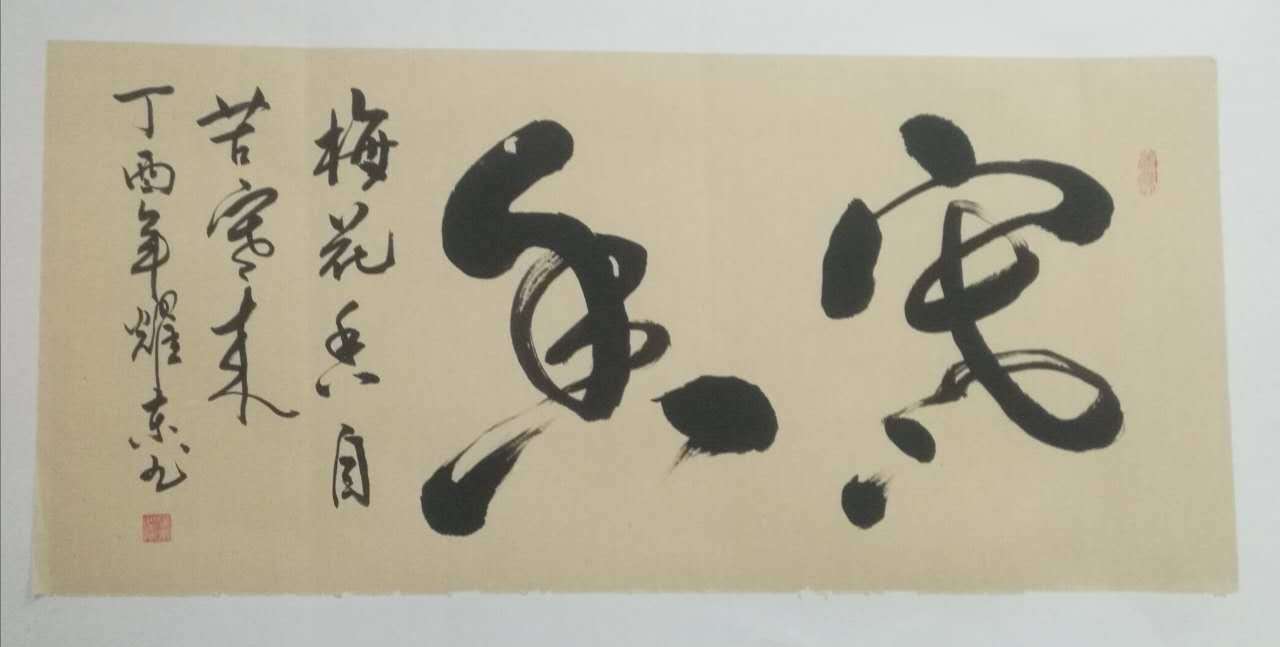 寒香
梅花香自
苦寒来
丁酉年耀东书